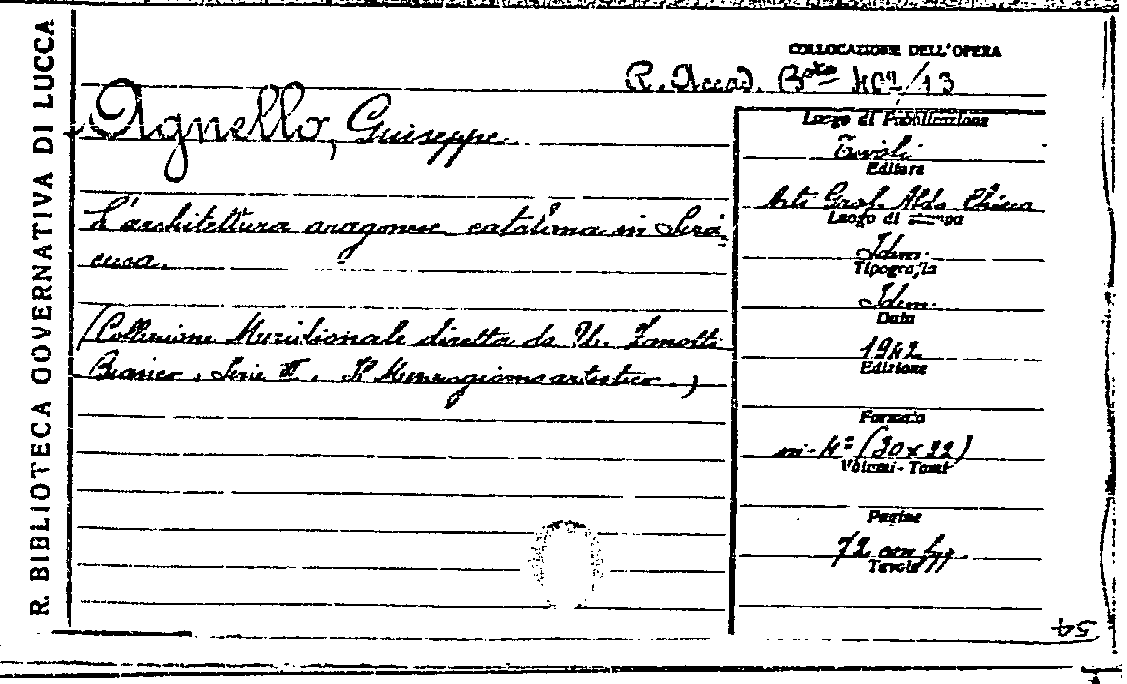 R. BIBLIOTECA GOVERNATIVA DI LUCCA
COLLOCAZIONE DELL'OPERA
R. Accad. B.ta 40²/13
Agnello, Giuseppe
L'architettura aragonese catalana in Sira-
cusa.
(Collezione Meridionale diretta da U. Zanotti
Bianco, Serie III. Il Mezzogiorno artistico.)
Luogo di Pubblicazione
Tivoli
Editore
Arti Graf. Aldo Chicca
Luogo di stampa
Idem.
Tipografia
Idem.
Data
1942
Edizione
Formato
in-4º (30x22)
Volumi - Tomi
Pagine
72 con fgg.
Tavole
54